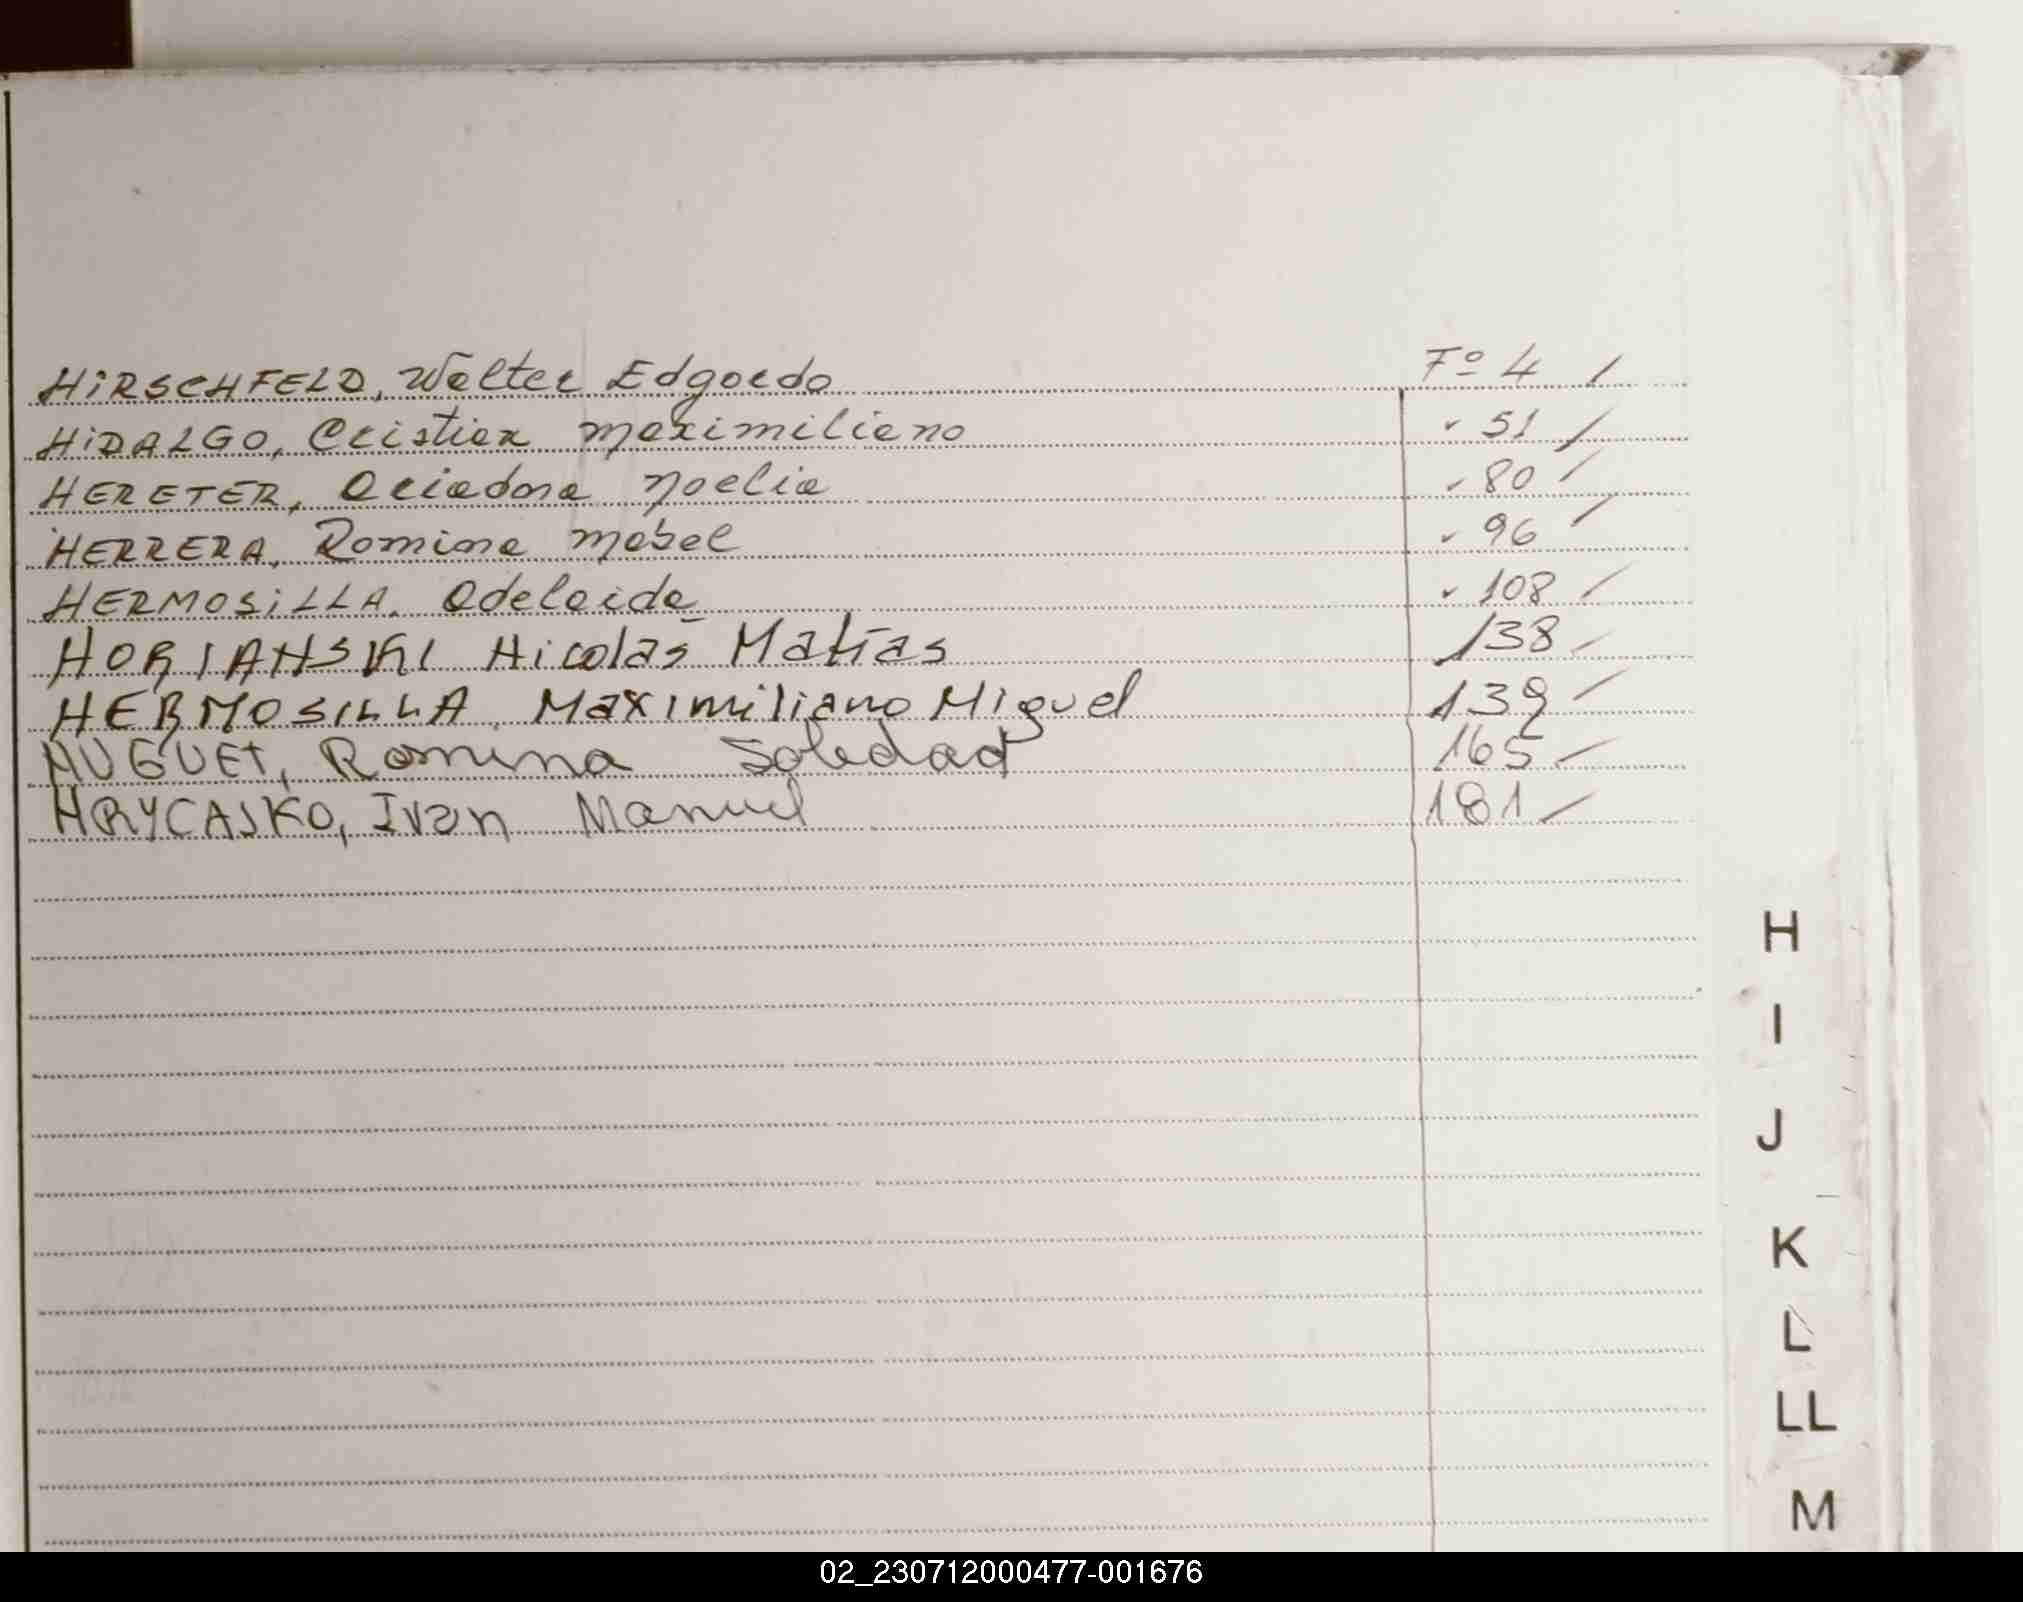 HIRSCHFELD, Walter Edgardo Fº 4 /
HIDALGO, Cristian Maximiliano " 51 /
HERETER, Ariadona Noelia " 80 /
HERRERA, Romina Mabel " 96 /
HERMOSILLA, Adelaida " 108 /
HORIANSKI Nicolás Matías 138 /
HERMOSILLA, Maximiliano Miguel 139 /
HUGUET, Romina Soledad 165 /
HRYCASKO, Ivan Manuel 181 /
H
I
J
K
L
LL
M
02_230712000477-001676